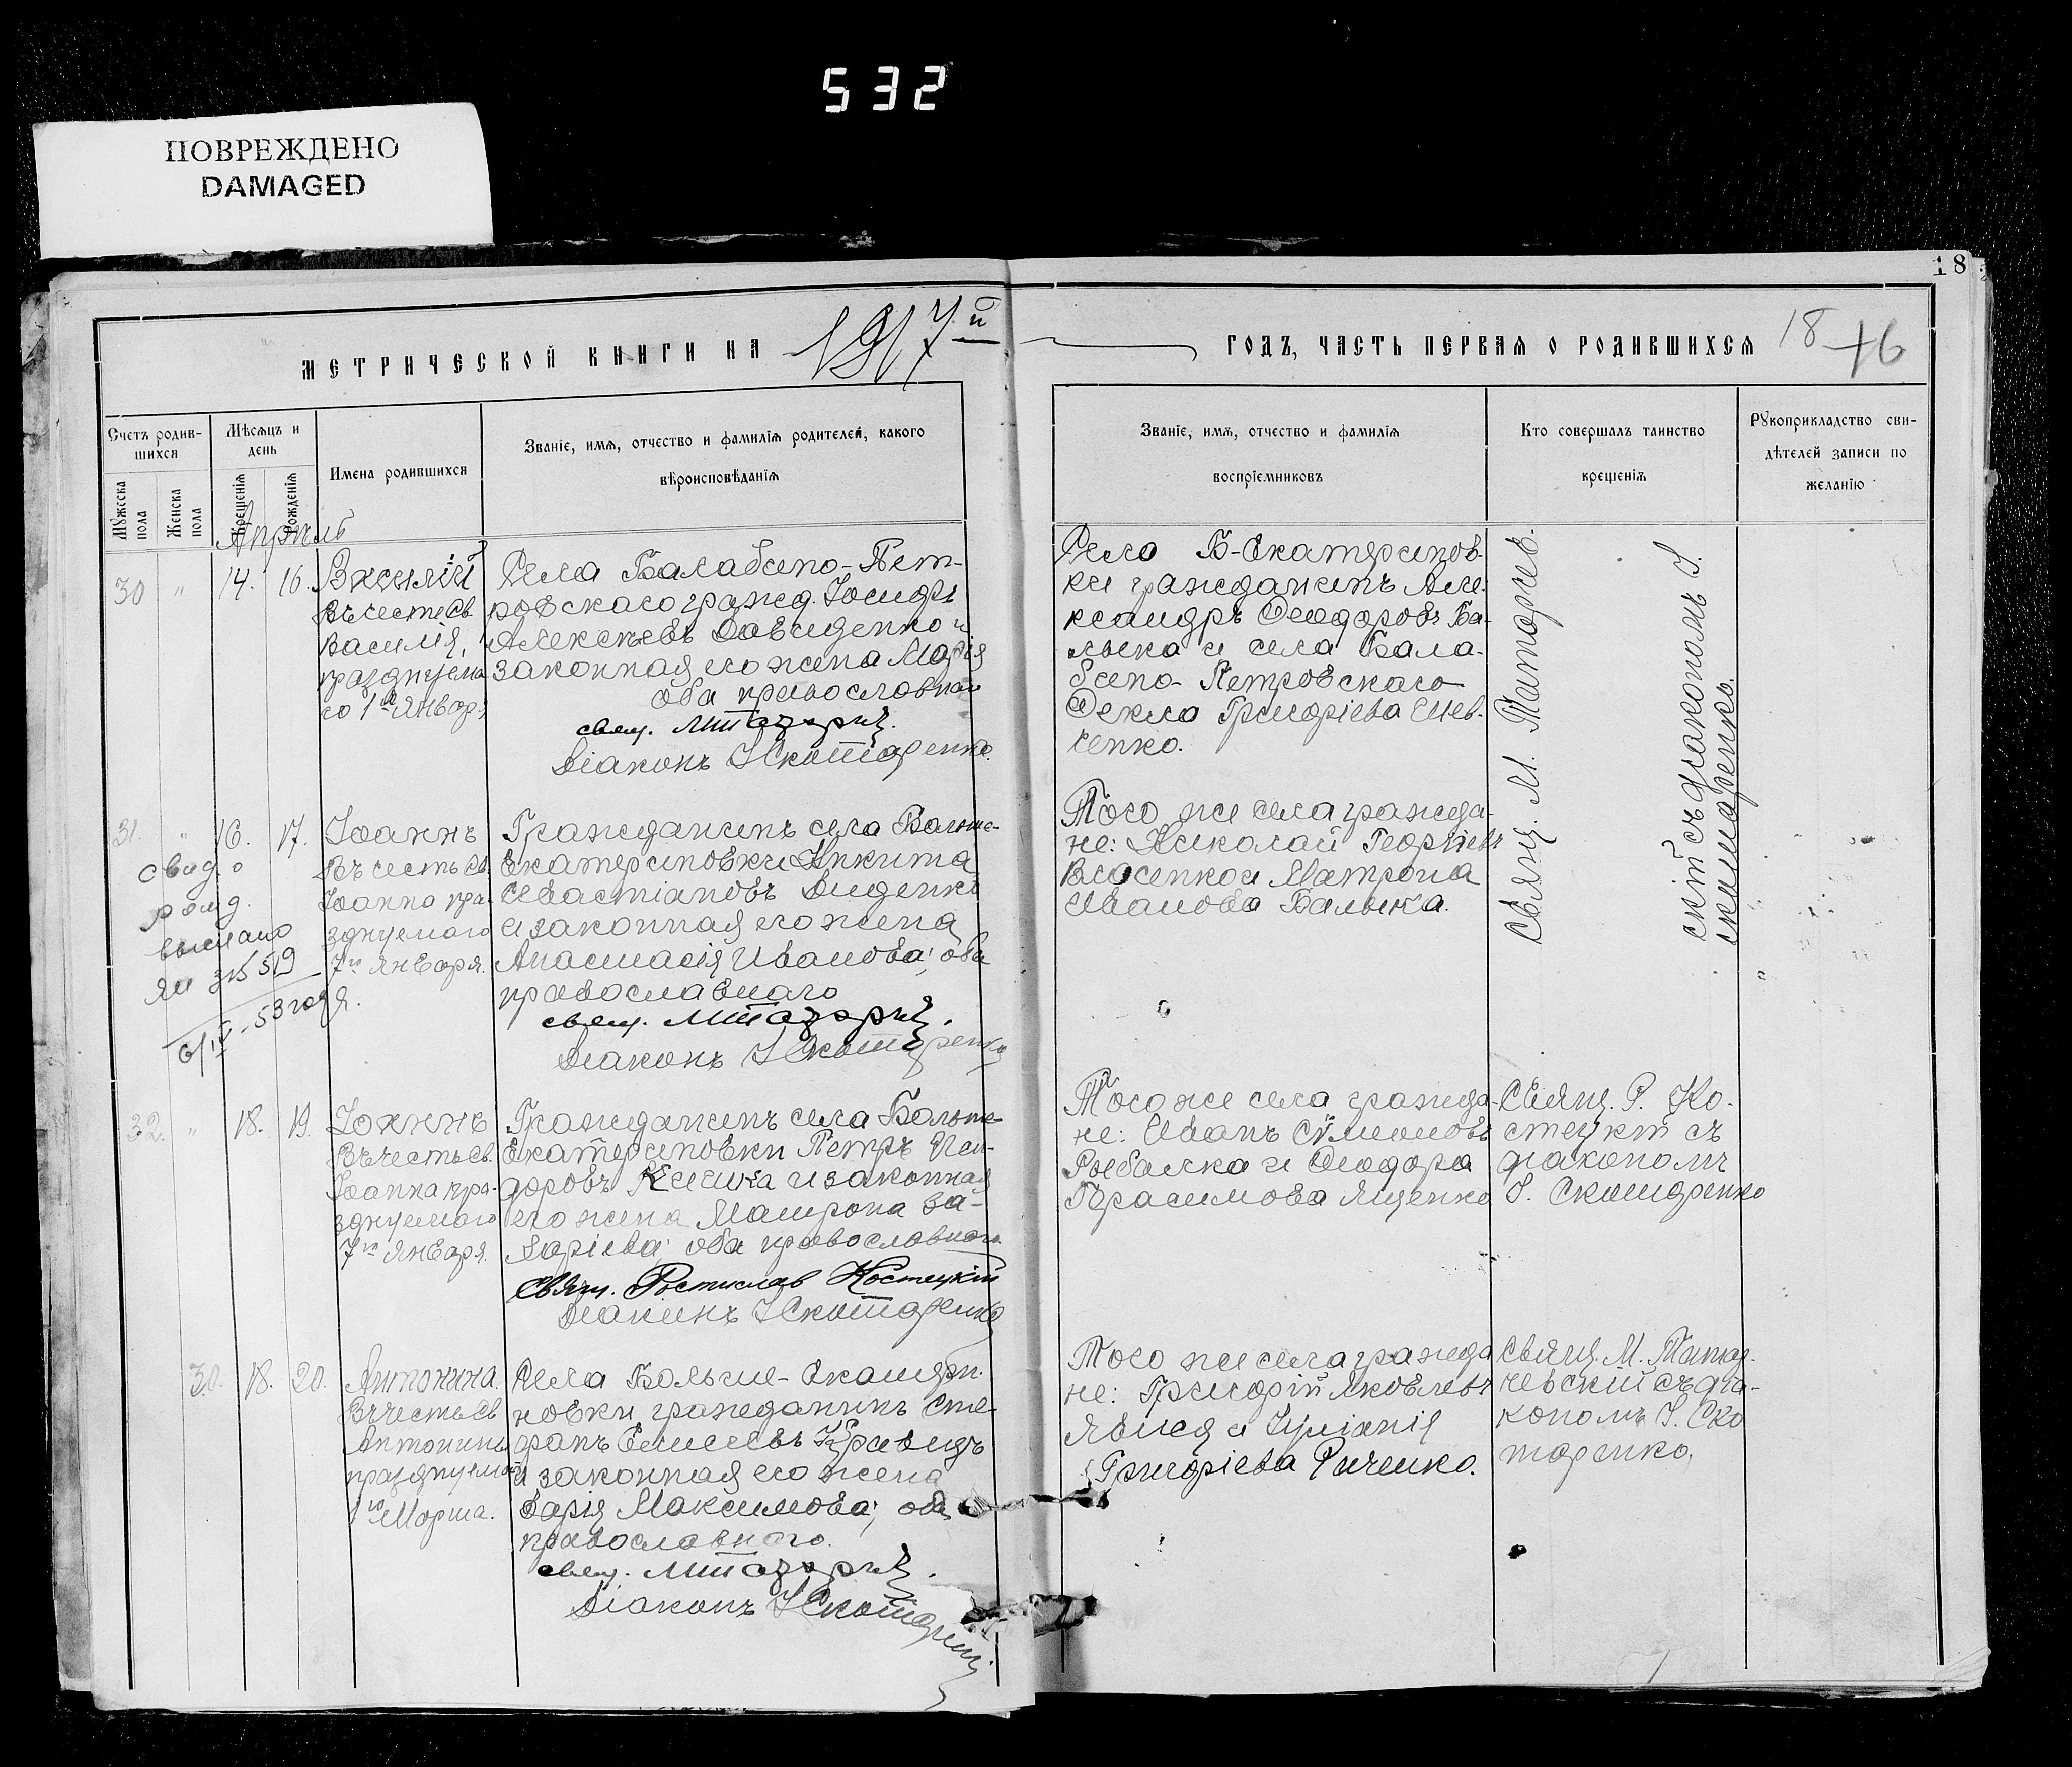 532
ПОВРЕЖДЕНО
DAMAGED
18
МЕТРИЧЕСКОЙ КНИГИ НА 1917й
ГОДЪ, ЧАСТЬ ПЕРВАЯ О РОДИВШИХСЯ
18
16
Счетъ родив-
шихся
Мужеска
пола
Женска
пола
Мѣсяцъ и
день
Крещенія
Рожденія
Имена родившихся
Званіе, имя, отчество и фамилія родителей, какого
вѣроисповѣданія
Званіе, имя, отчество и фамилія
воспріемниковъ
Кто совершалъ таинство
крещенія
Рукоприкладство сви-
дѣтелей записи по
желанію
Апрѣль
30 " 14. 16.
Василій
Въ честь Св.
Василія,
празднуема
го 1го Января
Села Балабино-Пет-
ровскаго гражд. Іосифъ
Алексѣевъ Давиденко и
законная его жена Марія
оба православнаго
свящ.
Діаконъ І Скотаренко.
Село Б-Екатеринов-
ки гражданинъ Але-
ксандръ Феодоровъ Ба-
лыка и села Бала-
бино-Петровскаго
Фекла Григоріева Шев-
ченко.
Свящ. М.
скій съ діакономъ І.
Скотаренко.
31. " 16. 17.
Іоаннъ
Въ честь Св.
Іоанна пра-
зднуемаго
7го Января.
свид. о
рожд.
выслано
за № 519
6/IV-53 года.
Гражданинъ села Больше-
Екатериновки Никита
Севастіановъ Диденко
и законная его жена
Анастасія Иванова; оба
православнаго
свящ.
Діаконъ І Скотаренко
Того же села гражда-
не: Николай Георгіевъ
Власенко и Матрона
Иванова Балыка.
32. " 18. 19.
Іоаннъ
Въ честь Св.
Іоанна пра-
зднуемаго
7го Января.
Гражданинъ села Больше
Екатериновки Петръ Иси-
доровъ и законная
его жена Матрона За-
харіева; оба православнаго
Свящ. Ростислав Костецкій
Діаконъ І Скотаренко
Того же села гражда-
не: Иванъ Сѵмеоновъ
Рыбалка и Феодора
Герасимова Яценко
Свящ. Р. Ко-
стецкій съ
діакономъ
І. Скотаренко
30. 18. 20.
Антонина.
Въ честь Св
Антонины
празднуемой
1го Марта.
Села Больше-Екатери-
новки гражданинъ Сте-
фанъ Елисеевъ Кравецъ
и законная его жена
Дарія Максимова; оба
православнаго.
свящ.
Діаконъ І Скотаренко
Того же села гражда
не: Григорій Яковлевъ
и Іуліанія
Григоріева
Свящ. М. Татар-
чевскій съ діа-
кономъ І. Ско
таренко.